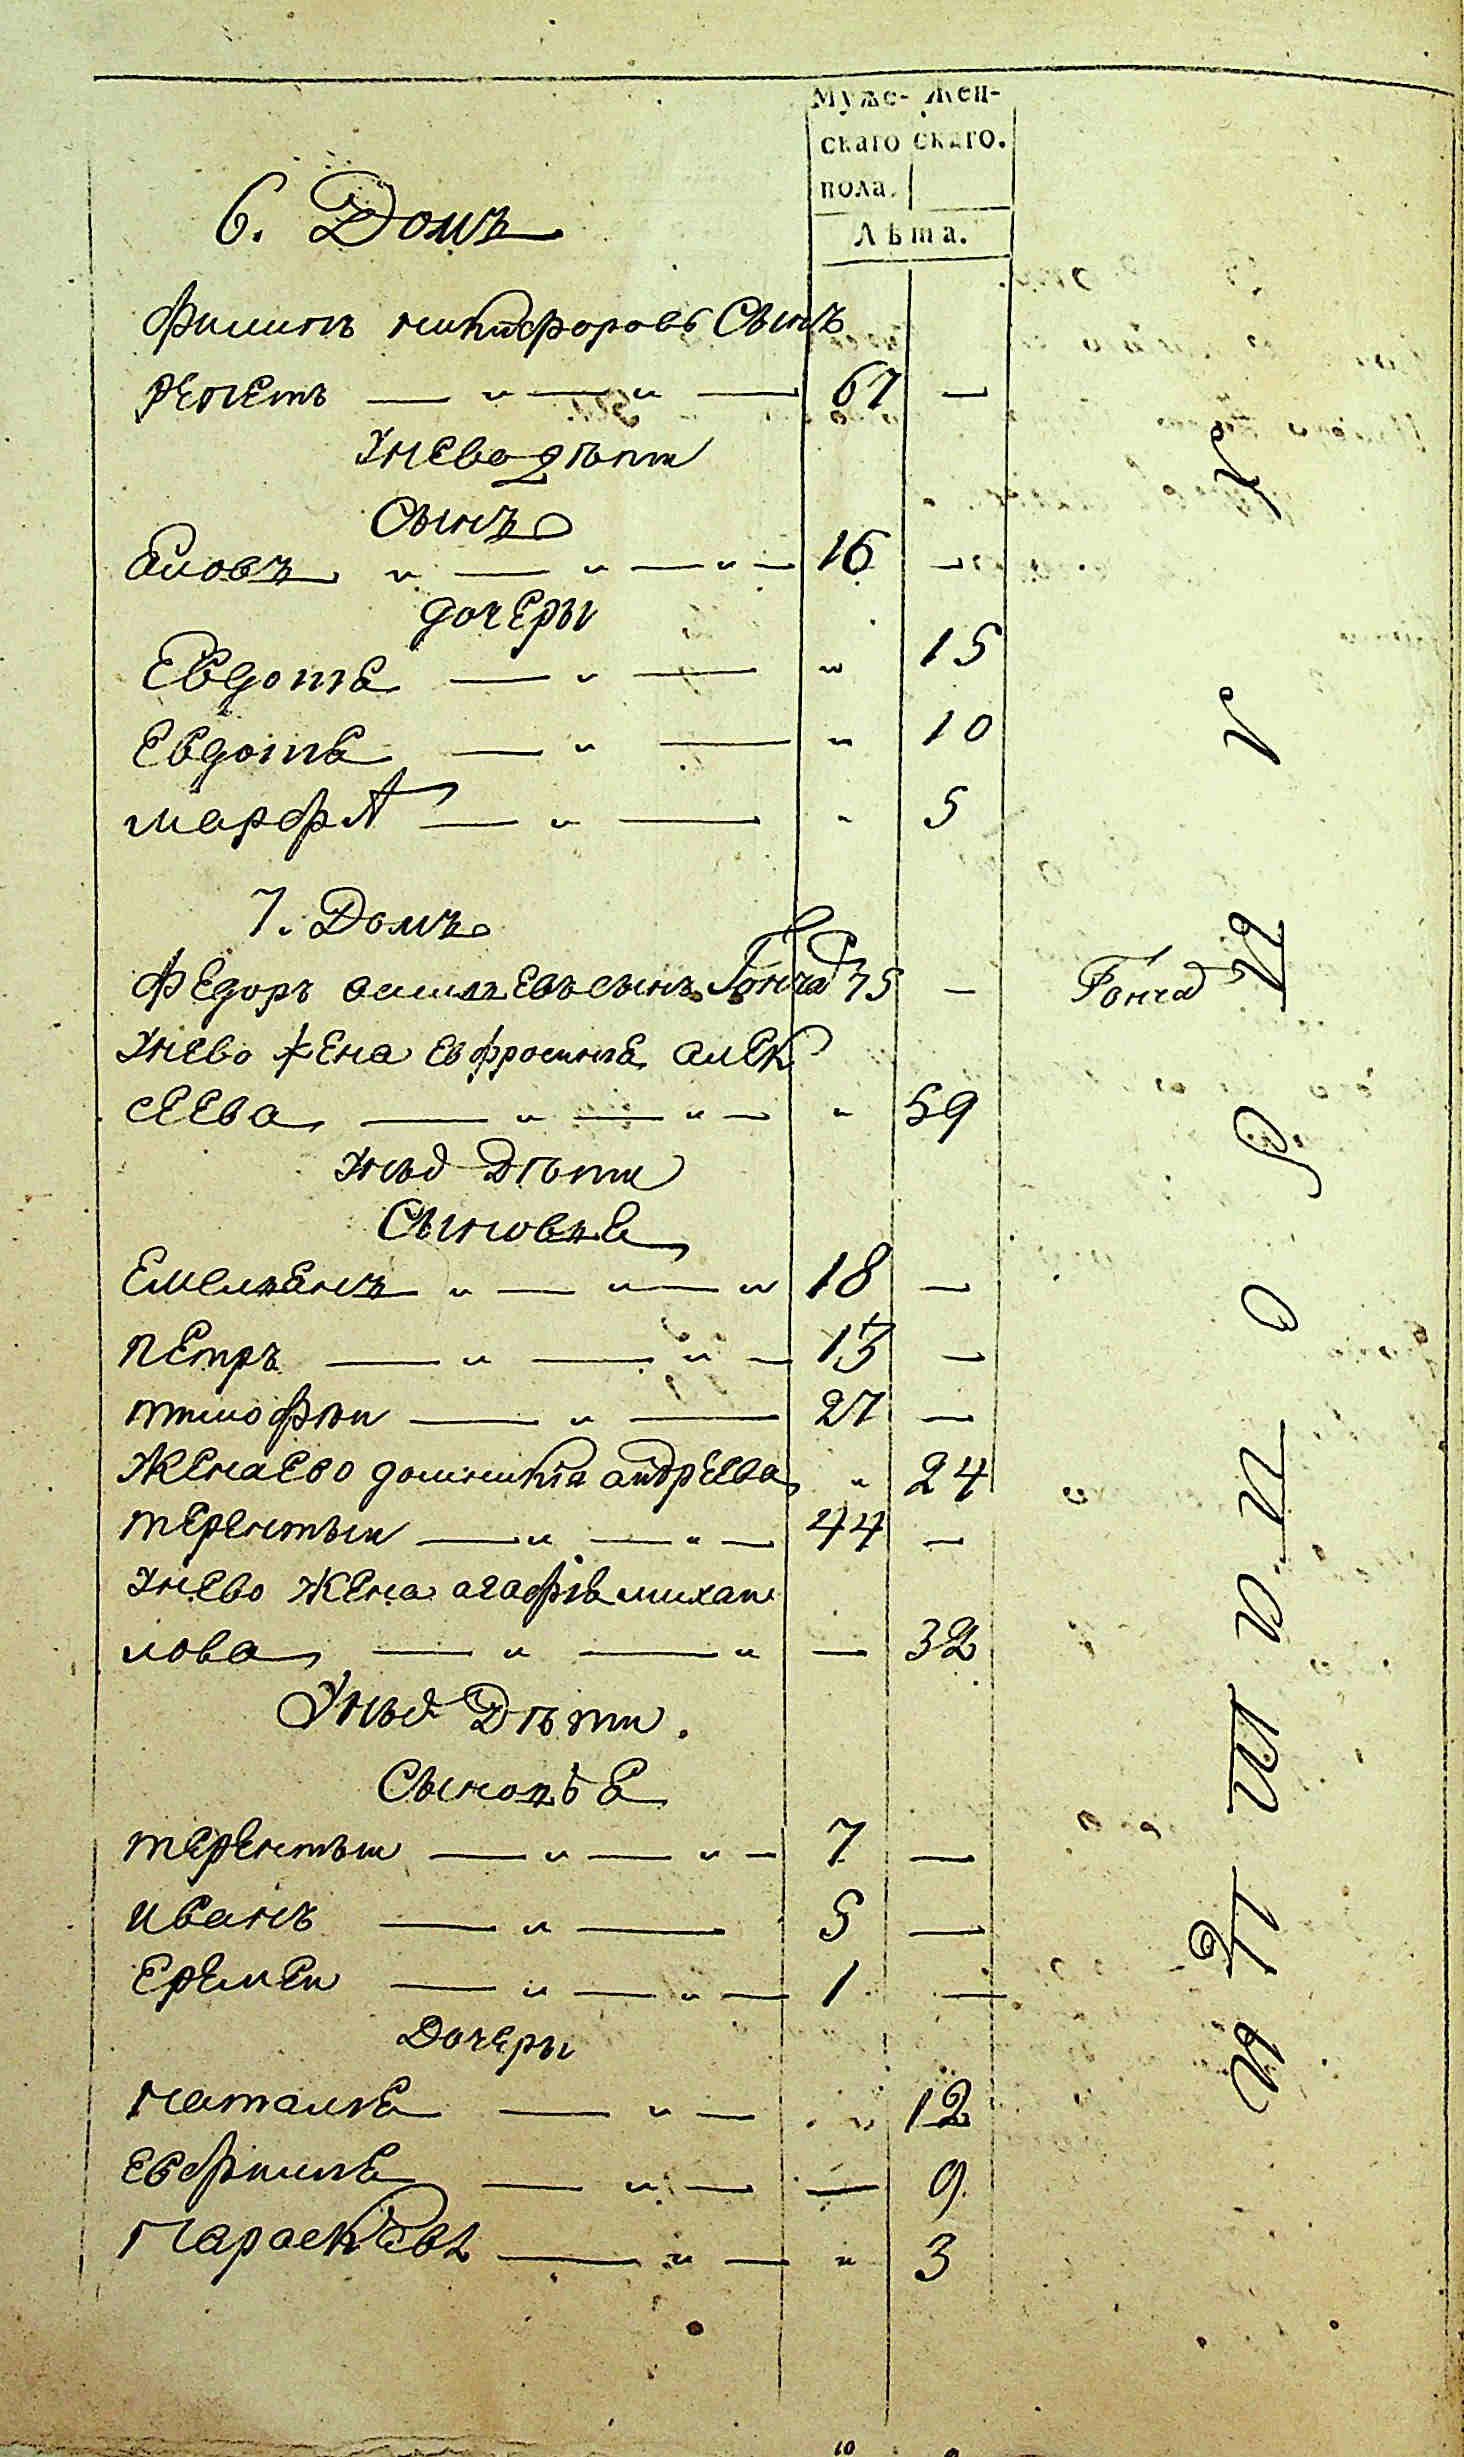 Муже- Жен-
скаго скаго.
пола.
Лѣта.
6. Домъ
Филипъ никифоровъ Сынъ
репетъ — „ — „ — 67 —
Унево дѣти
Сынъ
„ — „ — „ — 16 —
дочеры
Евдотя — „ — „ 15
Евдотя — „ — „ 10
марфа — „ — „ 5
7. Домъ
Федоръ василевъ сынъ Гончар 75 — Гончар
Унево жена евфросиня алек
сеева — „ — „ — „ 59
Унѣх Дѣти
Сыновя
Емелянъ „ — „ — „ 18 —
петръ — „ — „ — 13 —
тимофѣи — „ — 27 —
Жена ево доминикия андреева „ 24
терентьи — „ — „ — 44 —
Унево жена агафия михаи
лова — „ — „ — 32
Унѣх Дѣти.
Сыновья
терентьи — „ — „ — 7 —
иванъ — „ — 5 —
еремеи — „ — „ — 1 —
Дочеры
наталия — „ — „ 12
евфимия — „ — — 9
параскева — „ — „ 3
10